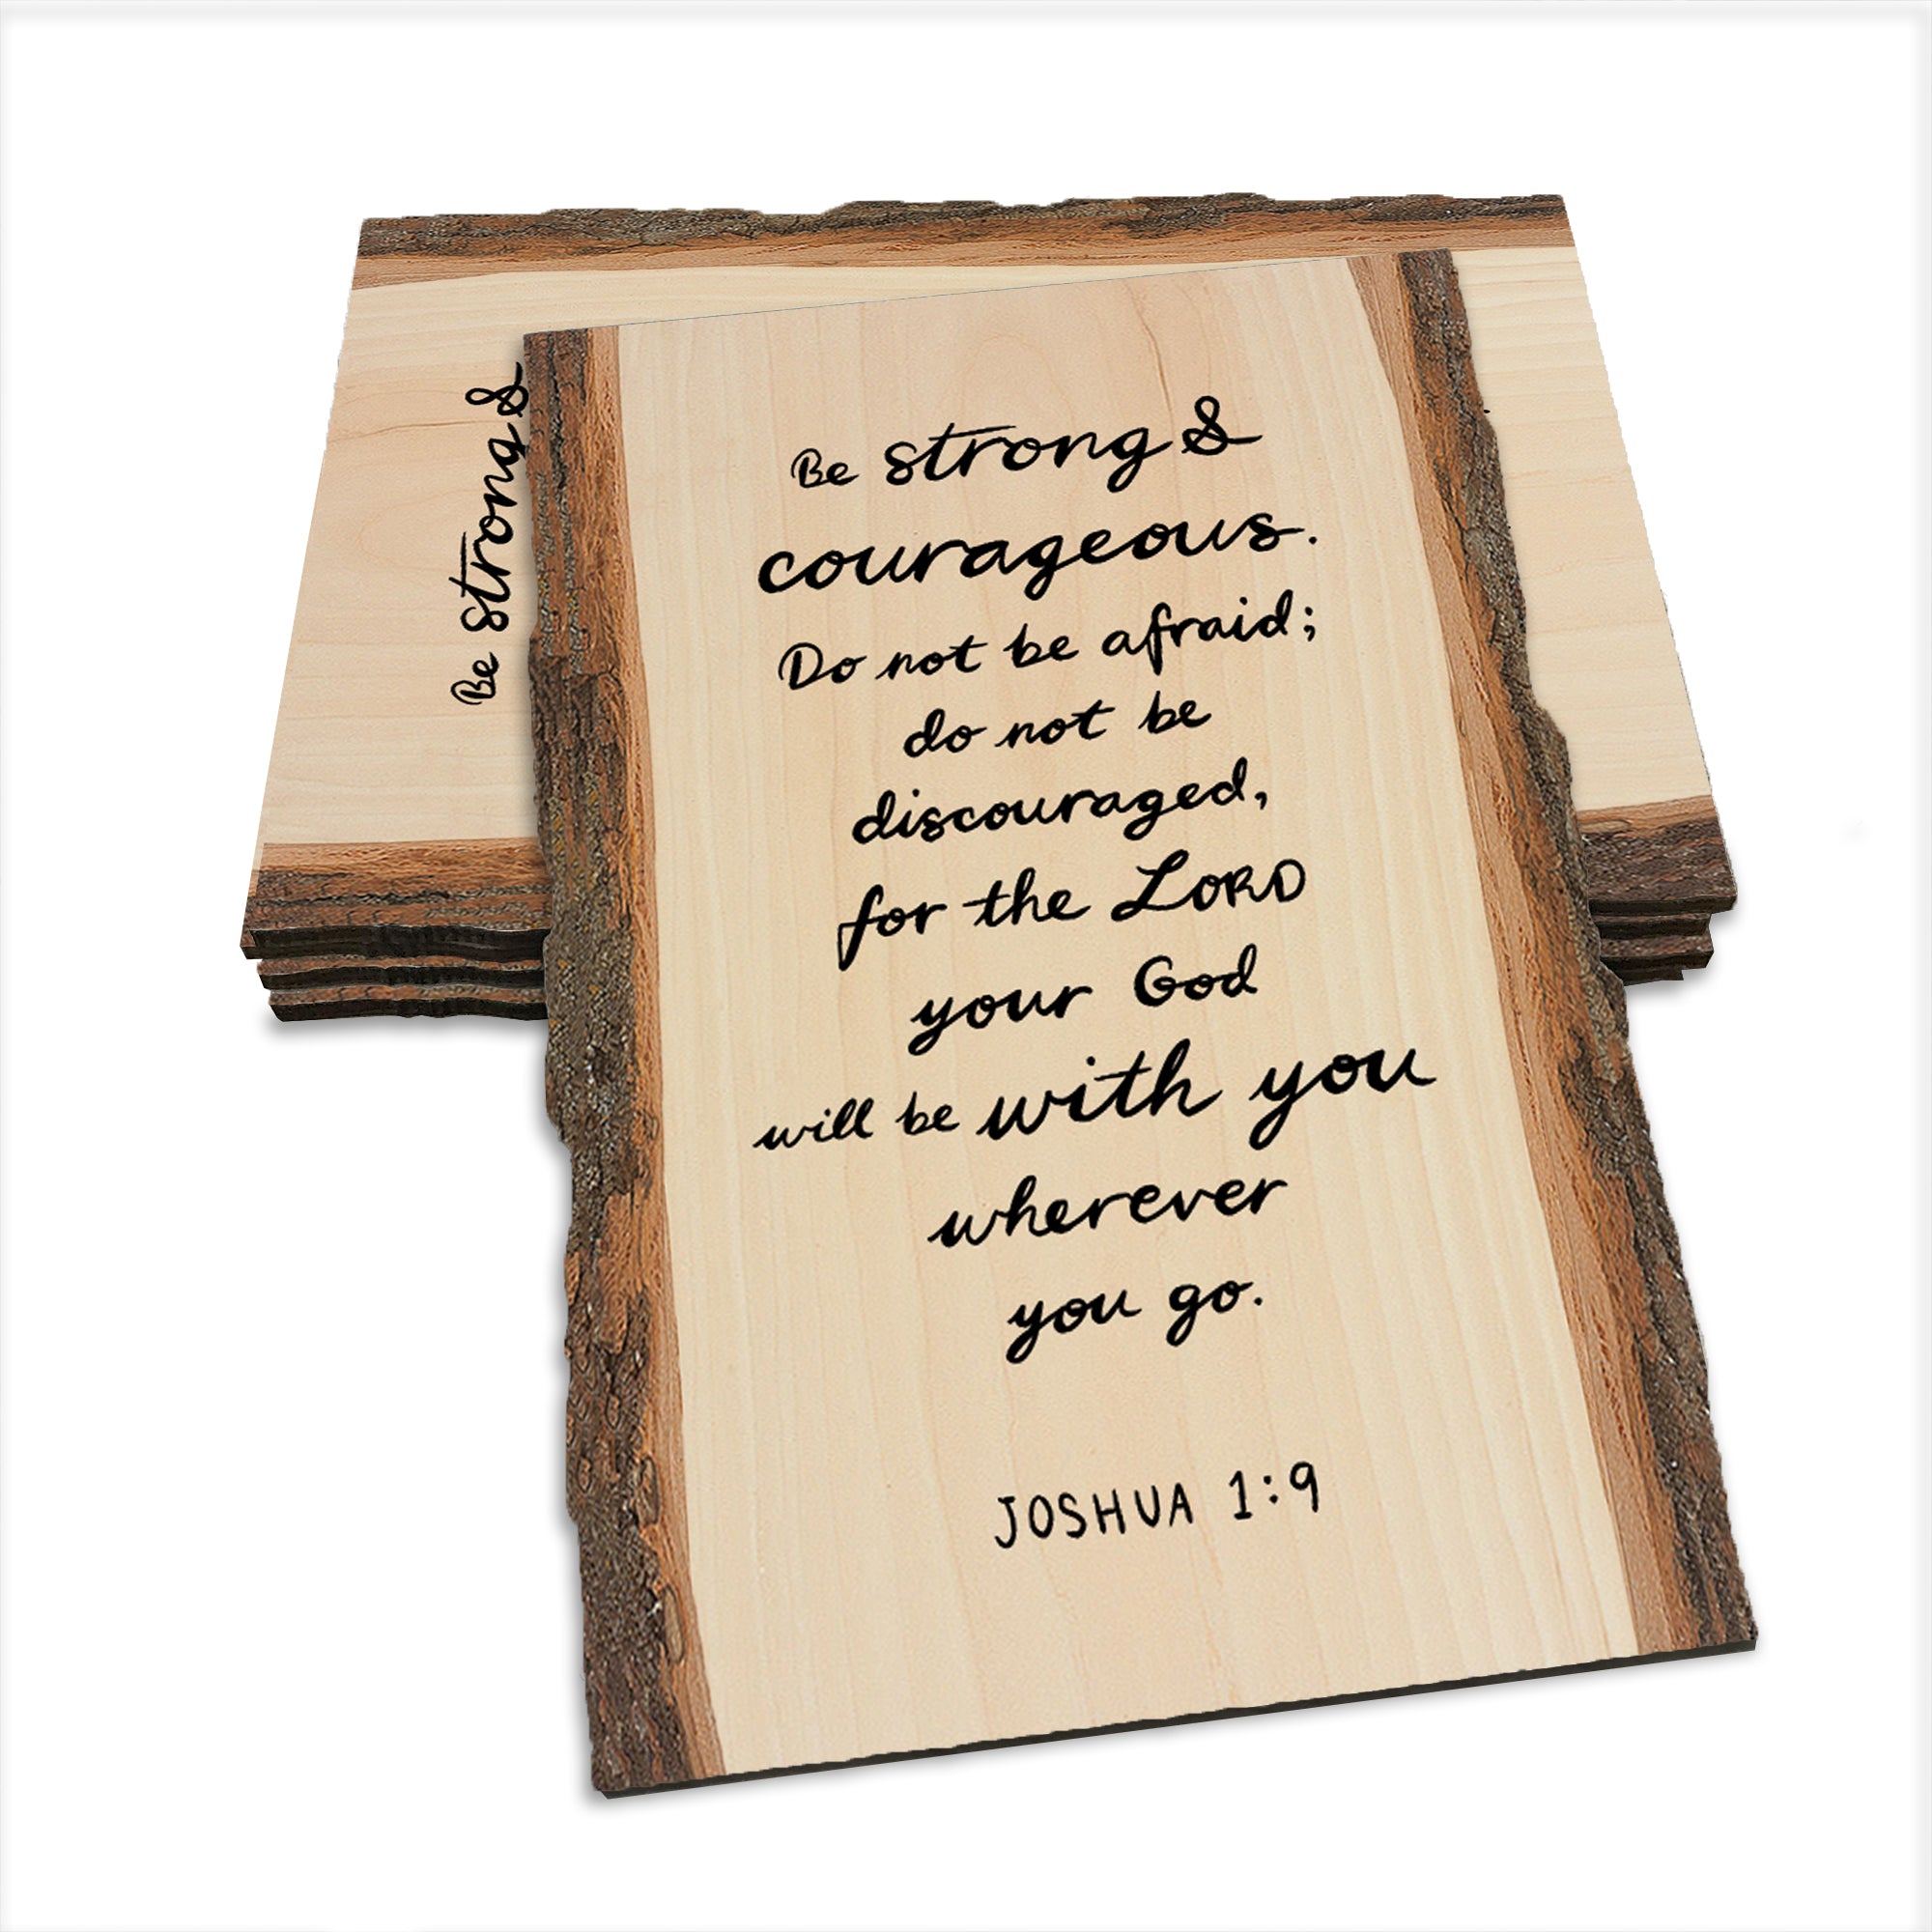 Be strong &
courageous.
Do not be afraid;
do not be
discouraged,
for the LORD
your God
will be with you
wherever
you go.
JOSHUA 1:9
Be strong &